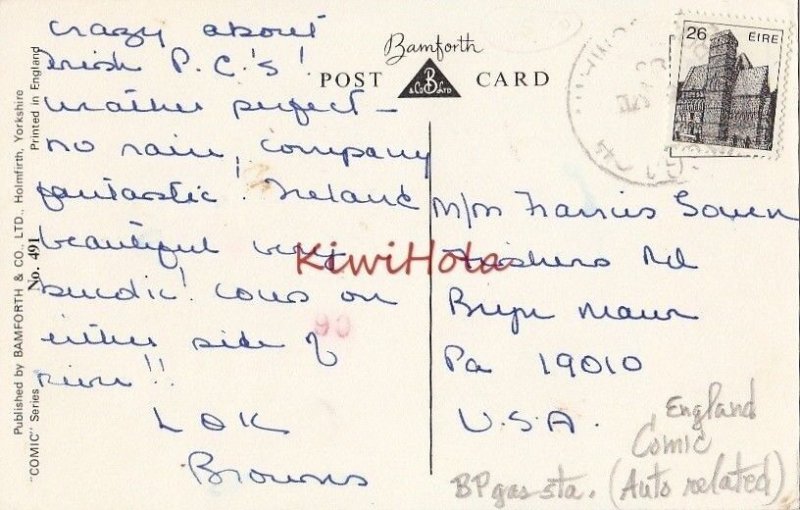 crazy about
Irish P.C.'s!
weather perfect –
no rain, company
fantastic! Ireland
beautiful very
bucolic! cows on
either side of
river!!
LOK
Browns
Published by BAMFORTH & CO., LTD., Holmfirth, Yorkshire
Printed in England
"COMIC" Series No. 491
Bamforth
POST CARD
B
& Co Ltd
26 EIRE
M/M Francis
Fishers Rd
Bryn Mawr
Pa 19010
U.S.A.
KiwiHola
90
England
Comic
BP gas sta. (Auto related)